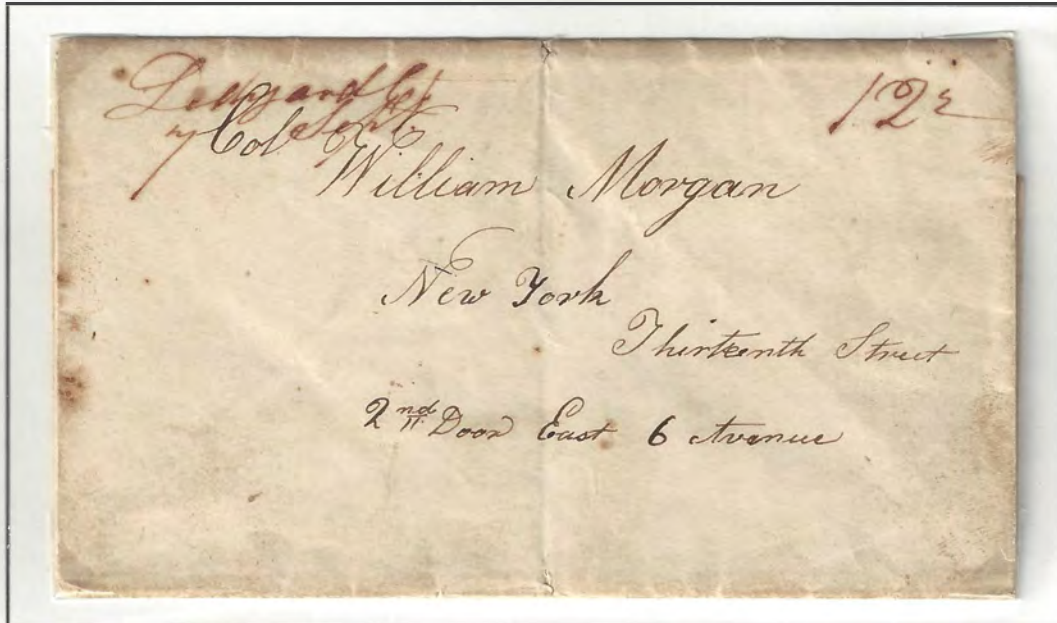 Ledyard Ct
7 Sept
12½
Col.
William Morgan
New York
Thirteenth Street
2nd Door East 6 Avenue